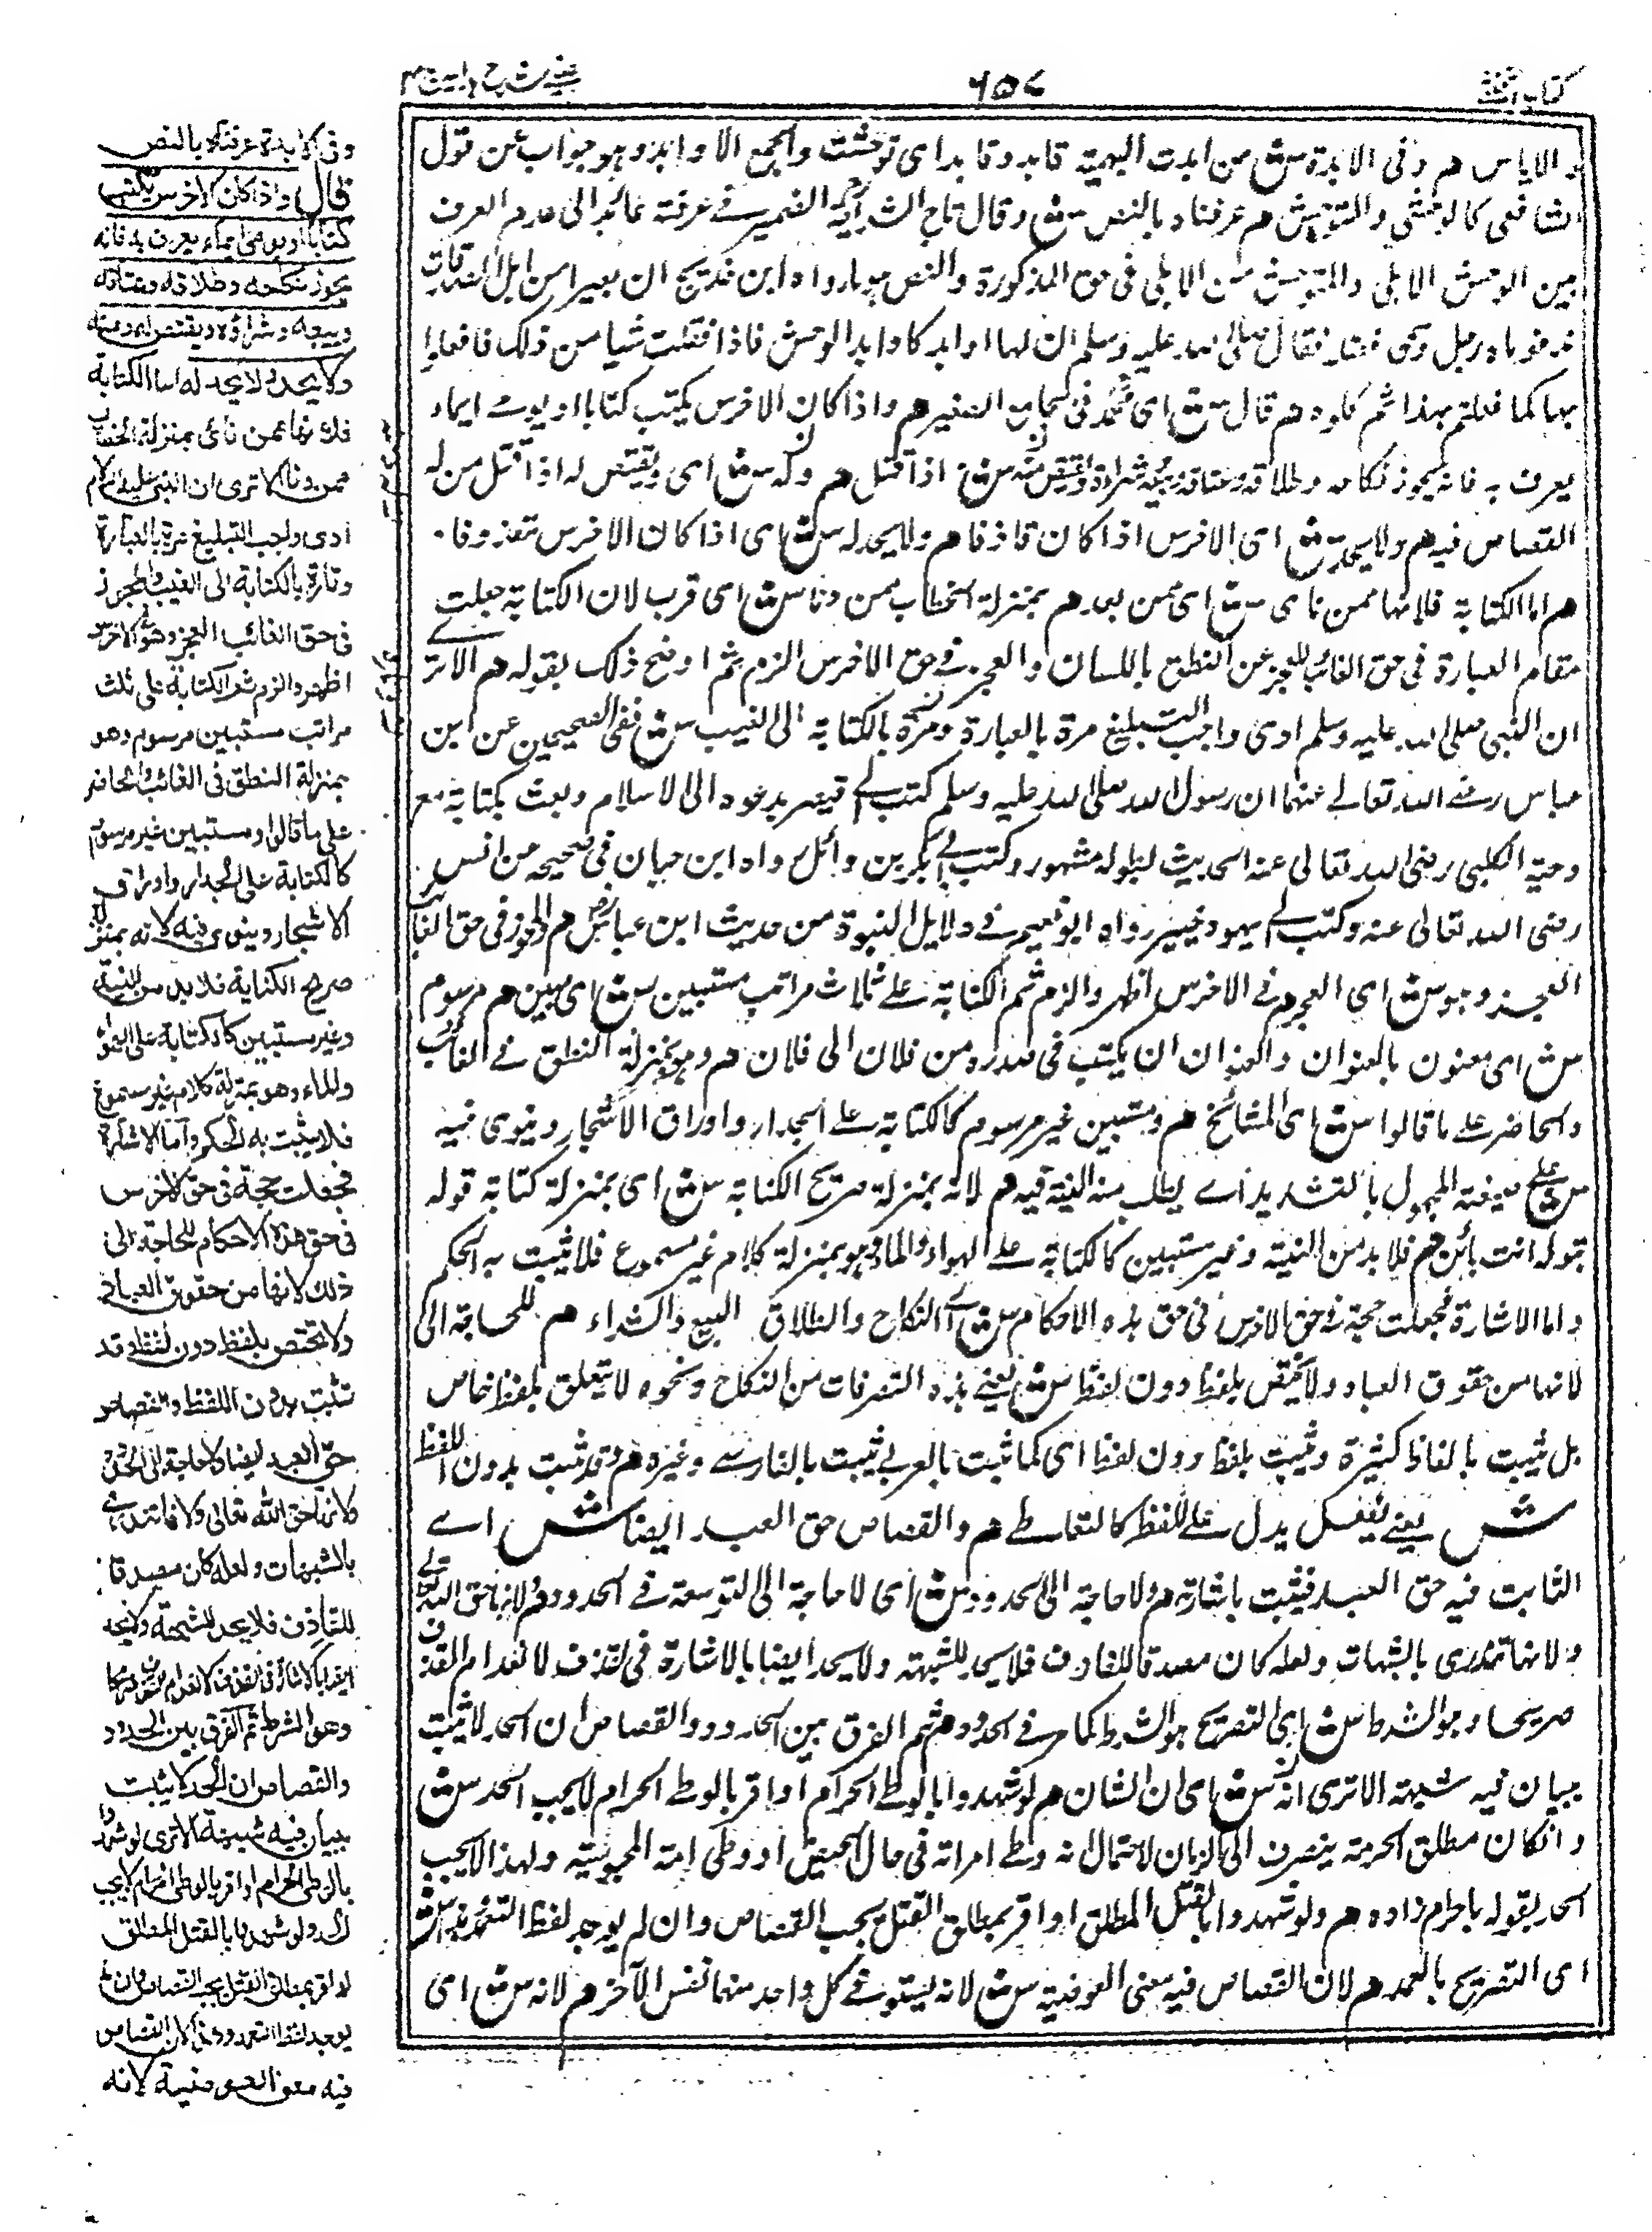 كتاب الخنثى
٦٥٧
عيني شرح هداية ج ٤
و الاياس هم وفى الابدة ش من ابدت البهيمة تابد وتابد اى توحشت والجمع الاوابد وهو جواب عن قول
الشافعى كالوحشى والمتوحش هم عرفناه بالنص ش وقال تاج الشريعة الضمير فى عرفته عائد الى عدم الفرق
بين الوحش الاهلى والمتوحش من الاهلى فى حق الذكوة والنص ما رواه ابن خديج ان بعيرا من ابل الصدقات
ند فرماه رجل وسمى فقتله فقال صلى الله عليه وسلم ان لها اوابد كاوابد الوحش فاذا فعلت شيا من ذلك فافعلوا
بها كما فعلتم بهذا ثم كلوه هم قال ش اى محمد فى الجامع الصغير هم واذا كان الاخرس يكتب كتابا او يومى ايماء
يعرف به فانه يجوز نكاحه وطلاقه وعتاقه وبيعه وشراؤه ويقتص منه ش اذا قتل هم وله ش اى ويقتص له اذا قتل من له
القصاص فيه هم ولا يحد ش اى الاخرس اذا كان قاذفا هم ولا يحد له ش اى اذا كان الاخرس مقذوفا
هم اما الكتابة فلانها ممن ناى ش اى عمن بعد هم بمنزلة الخطاب ممن دنا ش اى قرب لان الكتابة جعلت
مقام العبارة فى حق الغائب للعجز عن النطق باللسان والعجز فى حق الاخرس الزم ثم اوضح ذلك بقوله هم الا ترى
ان النبى صلى الله عليه وسلم ادى واجب التبليغ مرة بالعبارة ومرة بالكتابة الى الغيب ش ففى الصحيحين عن ابن
عباس رضى الله تعالى عنهما ان رسول الله صلى الله عليه وسلم كتب الى قيصر يدعوه الى الاسلام وبعث بكتابه مع
دحية الكلبى رضى الله تعالى عنه الحديث بطوله مشهور وكتب الى بكر بن وائل رواه ابن حبان فى صحيحه من انس
رضى الله تعالى عنه وكتب الى يهود خيبر رواه ابو نعيم فى دلايل النبوة من حديث ابن عباس رض هم والمجوز فى حق الغائب
العجز وهو ش اى العجز هم فى الاخرس اظهر والزم ثم الكتابة على ثلاث مراتب مستبين ش اى مبين هم مرسوم
ش اى معنون بالعنوان والعنوان ان يكتب فى صدره من فلان الى فلان هم وهو بمنزلة النطق فى الغائب
والحاضر على ما قالوا ش اى المشائخ هم ومستبين غير مرسوم كالكتابة على الجدار واوراق الاشجار وينوى فيه
ش على صيغة المجهول بالتشديد اى يطلب منه النية فيه هم لانه بمنزلة صريح الكناية ش اى بمنزلة كتابة قوله
بقوله انت بائن هم فلا بد من النية وغير مستبين كالكتابة على الهواء والماء وهو بمنزلة كلام غير مسموع فلا يثبت به الحكم
واما الاشارة فجعلت حجة فى حق الاخرس فى حق هذه الاحكام ش اى النكاح والطلاق البيع والشراء هم للحاجة الى
لانها من حقوق العباد ولا يختص بلفظ دون لفظ ش يعنى هذه التصرفات من النكاح ونحوه لا يتعلق بلفظ خاص
بل يثبت بالفاظ كثيرة ويثبت بلفظ دون لفظ اى كما ثبت بالعربى يثبت بالفارسى وغيره هم وقد ثبت بدون اللفظ
ش يعنى بفعل يدل على اللفظ كالتعاطى هم والقصاص حق العبد ايضا ش اى
الثابت فيه حق العبد فيثبت باشارته هم ولا حاجة الى الحدود ش اى لا حاجة الى التوسعة فى الحدود هم لانها حق الله تعالى
ولانها تندرى بالشبهات ولعله كان مصدقا للقاذف فلا يحد للشبهة ولا يحد ايضا بالاشارة فى القذف لانعدام القذف
صريحا وهو الشرط ش اى التصريح هو الشرط كما مر فى الحدود هم ثم الفرق بين الحدود والقصاص ان الحد لا يثبت
ببيان فيه شبهة الا ترى انه ش اى ان الشان هم لو شهدوا بالوطى الحرام او اقر بالوطى الحرام لا يجب الحد ش
وان كان مطلق الحرمة ينصرف الى الزنا لاحتمال انه وطى امراته فى حال الحيض او وطى امته المجوسية ولهذا لا يجب
الحد بقوله يا حرام زاده هم ولو شهدوا بالقتل المطلق او اقر بمطلق القتل يجب القصاص وان لم يوجد لفظ التعمد ش
اى التصريح بالعمد هم لان القصاص فيه معنى العوضية ش لانه يستوفى كل واحد منهما نفس الآخر هم لانه ش اى
وفى الابدة عرفناه بالنص
قال واذا كان الاخرس يكتب
كتابا او يومى ايماء يعرف به فانه
يجوز نكاحه وطلاقه وعتاقه
وبيعه وشراؤه ويقتص له ومنه
ولا يحد ولا يحد له اما الكتابة
فلانها ممن ناى بمنزلة الخطاب
ممن دنا الا ترى ان النبى عليه السلام
ادى واجب التبليغ مرة بالعبارة
وتارة بالكتابة الى الغيب والمجوز
فى حق الغائب العجز وهو فى الاخرس
اظهر والزم ثم الكتابة على ثلث
مراتب مستبين مرسوم وهو
بمنزلة النطق فى الغائب والحاضر
على ما قالوا ومستبين غير مرسوم
كالكتابة على الجدار واوراق
الاشجار وينوى فيه لانه بمنزلة
صريح الكناية فلا بد من النية
وغير مستبين كالكتابة على الهواء
والماء وهو بمنزلة كلام غير مسموع
فلا يثبت به الحكم واما الاشارة
فجعلت حجة فى حق الاخرس
فى حق هذه الاحكام للحاجة الى
ذلك لانها من حقوق العباد
ولا تختص بلفظ دون لفظ وقد
تثبت بدون اللفظ والقصاص
حق العبد ايضا ولا حاجة الى الحدود
لانها حق الله تعالى ولانها تندرئ
بالشبهات ولعله كان مصدقا
للقاذف فلا يحد للشبهة ولا يحد
ايضا بالاشارة فى القذف لانعدام القذف صريحا
وهو الشرط ثم الفرق بين الحدود
والقصاص ان الحد لا يثبت
ببيان فيه شبهة الا ترى لو شهدوا
بالوطى الحرام او اقر بالوطى الحرام لا يجب
الحد ولو شهدوا بالقتل المطلق
او اقر بمطلق القتل يجب القصاص وان لم
يوجد لفظ التعمد وهذا لان القصاص
فيه معنى العوضية لانه